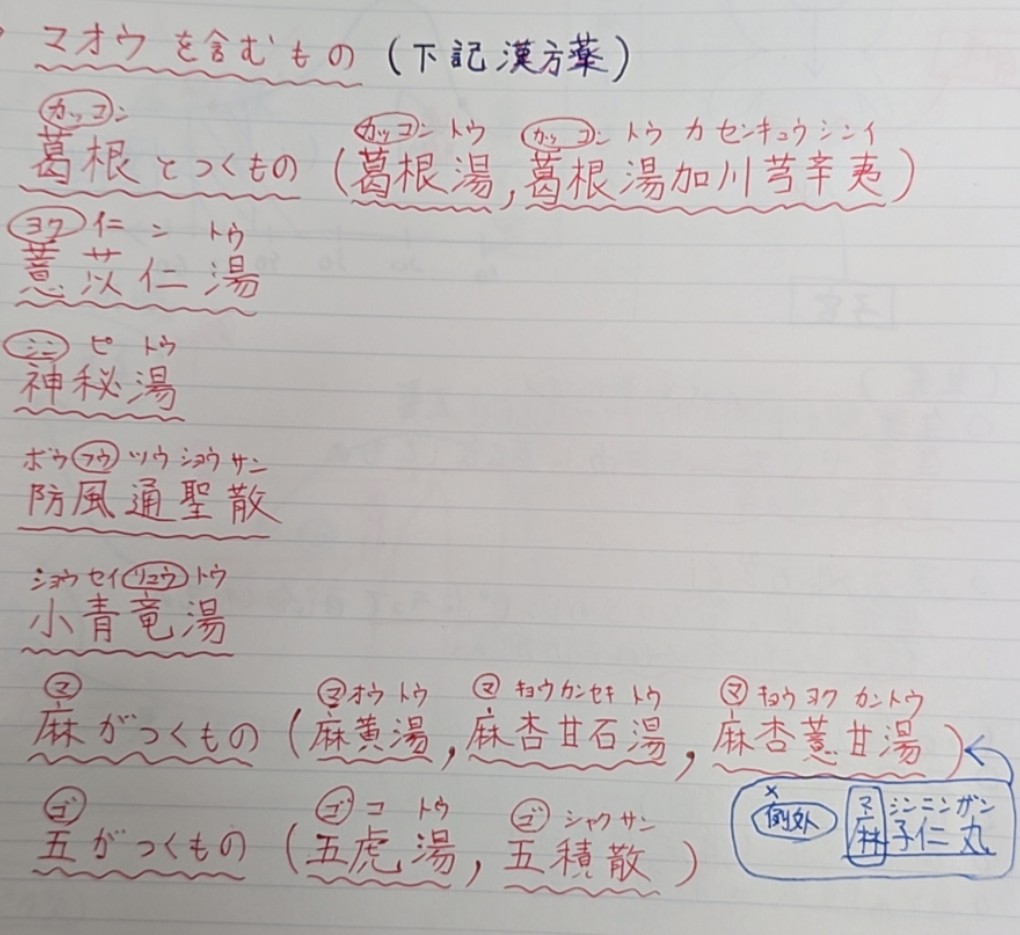 マオウを含むもの (下記漢方薬)
カッコン カッコントウ カッコントウカセンキュウシンイ
葛根とつくもの (葛根湯, 葛根湯加川芎辛夷)
ヨク仁ントウ
薏苡仁湯
シンピトウ
神秘湯
ボウフウツウショウサン
防風通聖散
ショウセイリュウトウ
小青竜湯
マ マオウトウ マキョウカンセキトウ マキョウヨクカントウ
麻がつくもの (麻黄湯, 麻杏甘石湯, 麻杏薏甘湯)
× 例外 マシンニンガン
麻子仁丸
ゴ ゴコトウ ゴシャクサン
五がつくもの (五虎湯, 五積散)